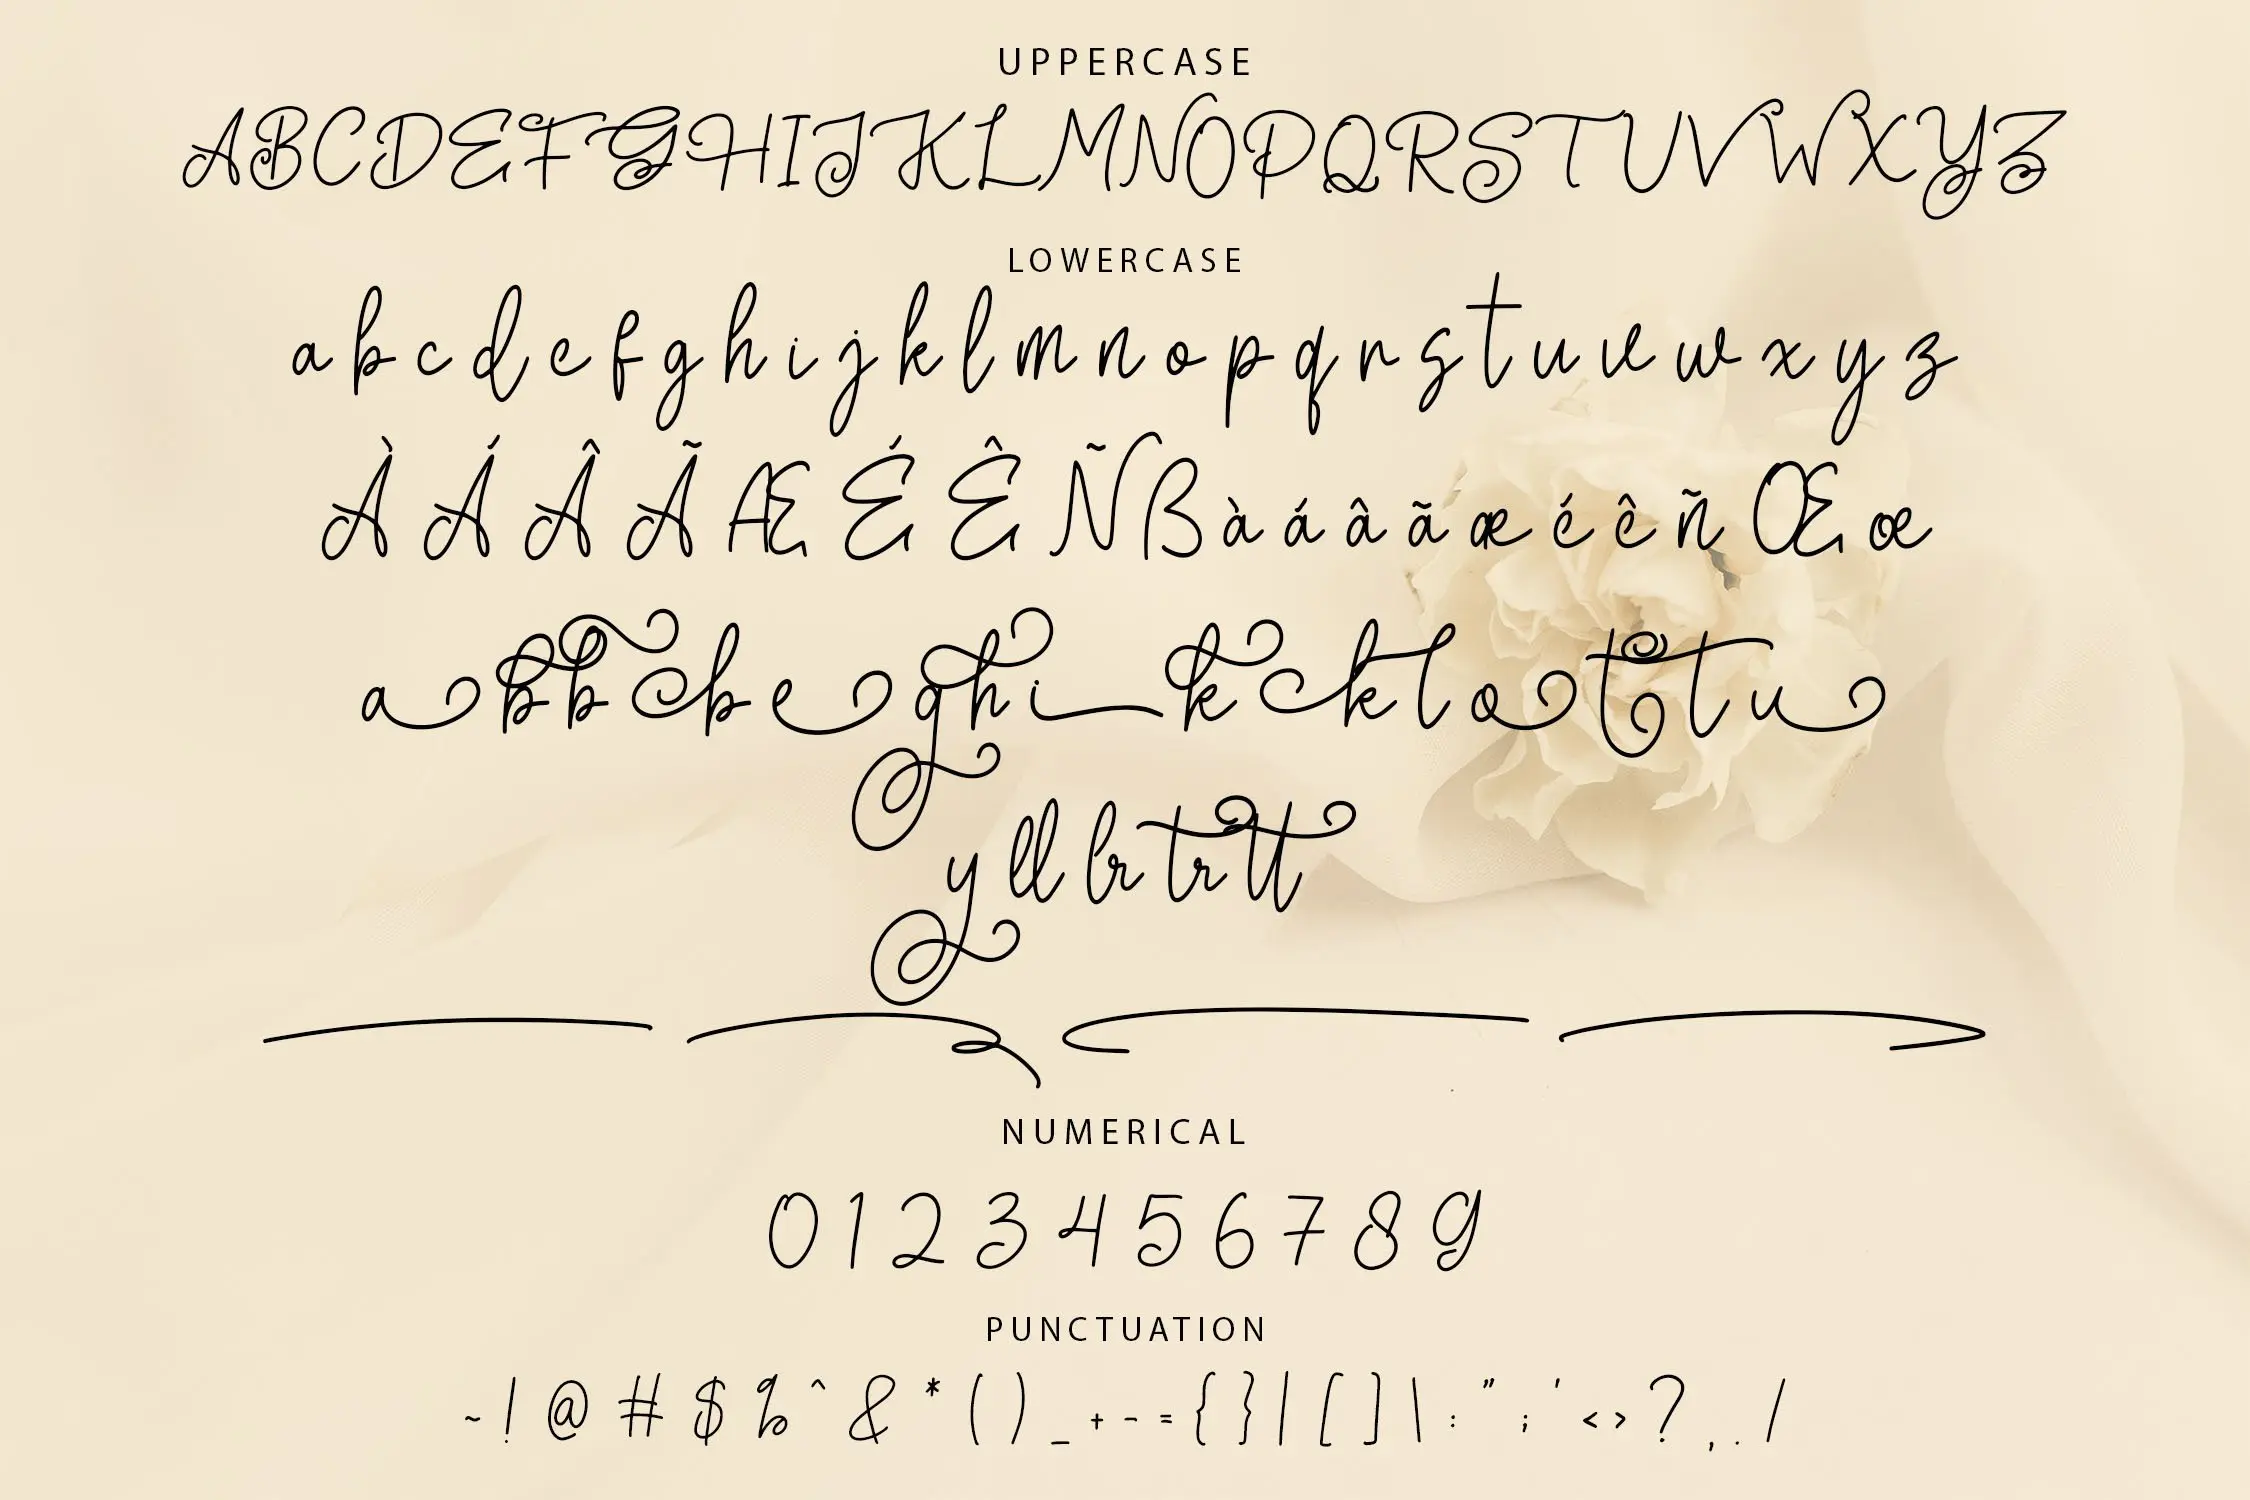 UPPERCASE
ABCDEFGHIJKLMNOPQRSTUVWXYZ
LOWERCASE
a b c d e f g h i j k l m n o p q r s t u v w x y z
À Á Â Ã Æ É Ê Ñ ß à á â ã æ é ê ñ Œ œ
a b b b e g h i k k l o t t u
y ll lr tr tt
NUMERICAL
0 1 2 3 4 5 6 7 8 9
PUNCTUATION
~ ! @ # $ % ^ & * ( ) _ + - = { } | [ ] \ : " ; ' < > ? , . /